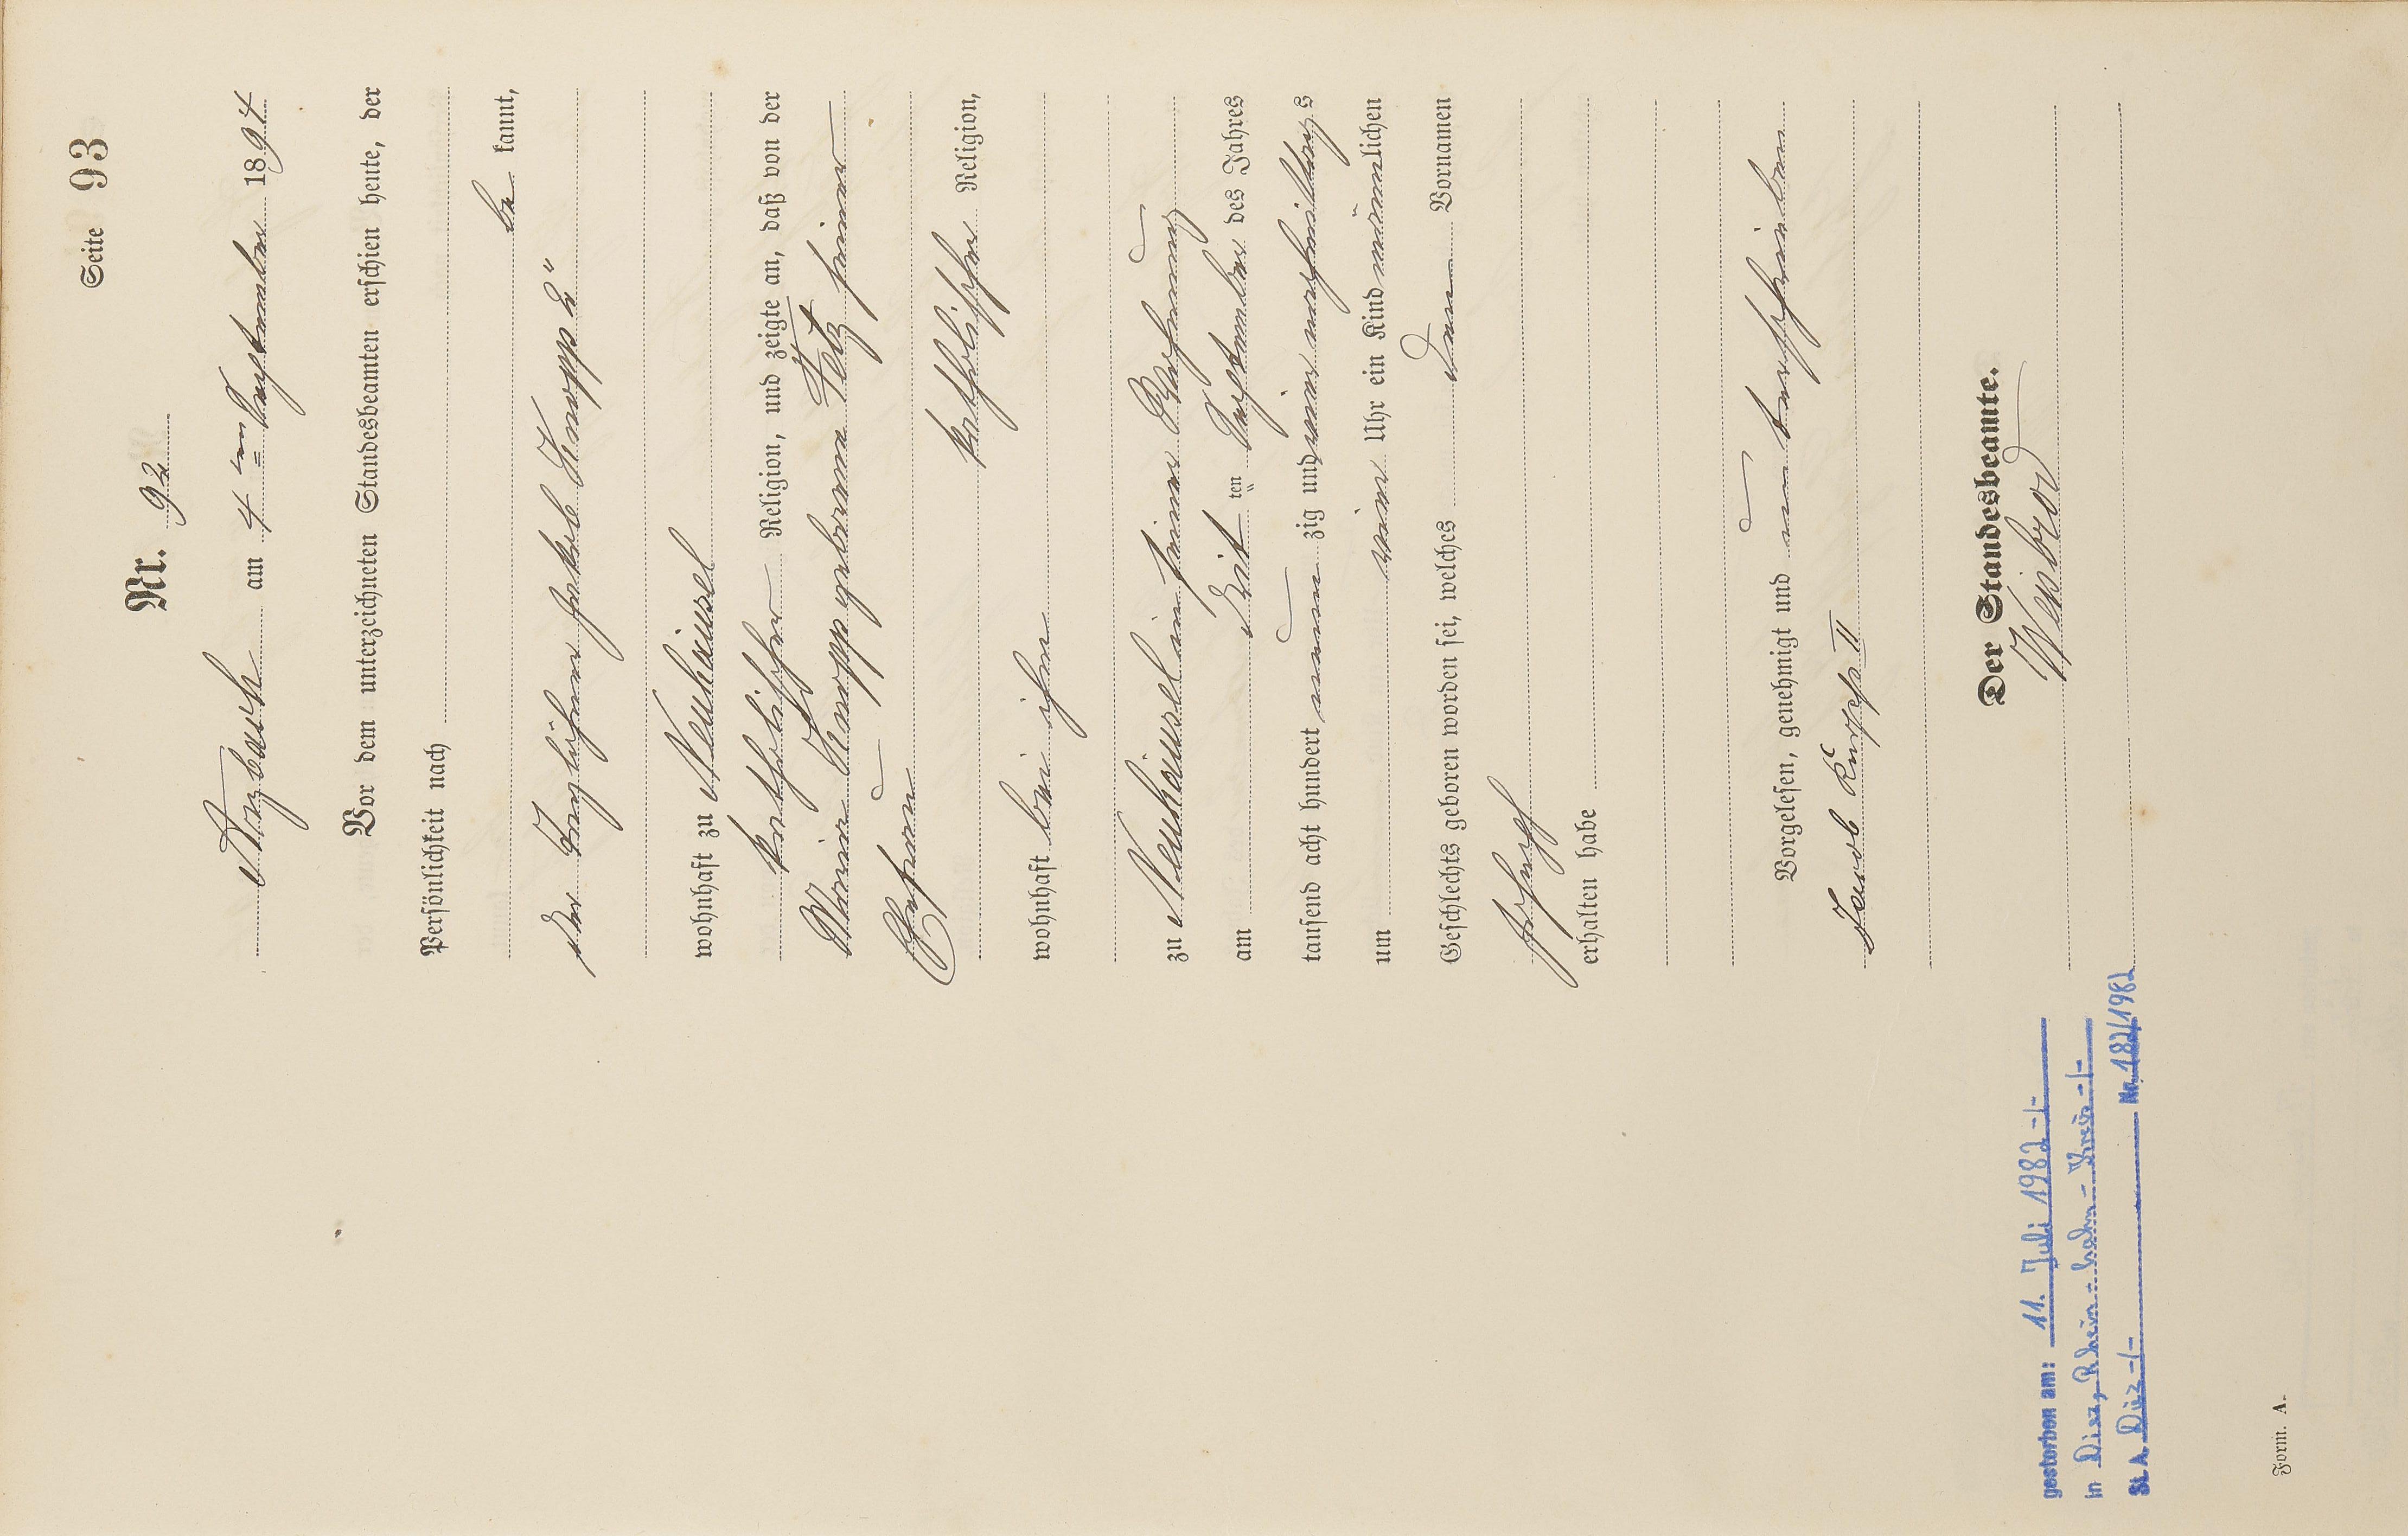 Seite 93
Nr. 92
Arzbach am 4ten September 1894
Vor dem unterzeichneten Standesbeamten erschien heute, der
Persönlichkeit nach
be kannt,
der Taglöhner Jakob Knopp 2"
wohnhaft zu Neuhäusel
katholischer Religion, und zeigte an, daß von der
Maria Knopp geborene Fetz seiner
Ehefrau
katholischer Religion,
wohnhaft bei ihm
zu Neuhäusel in seiner Wohnung
am drit ten September des Jahres
tausend acht hundert neun zig und vier nachmittags
um vier Uhr ein Kind männlichen
Geschlechts geboren worden sei, welches den Vornamen
Joseph
erhalten habe
Vorgelesen, genehmigt und unterschrieben
Jacob II
Der Standesbeamte.
Weisbrod
gestorben am: 11. Juli 1982 -/-
in Diez, Rhein-Lahn-Kreis -/-
St. A. Diez -/- Nr. 182/1982
Form. A.